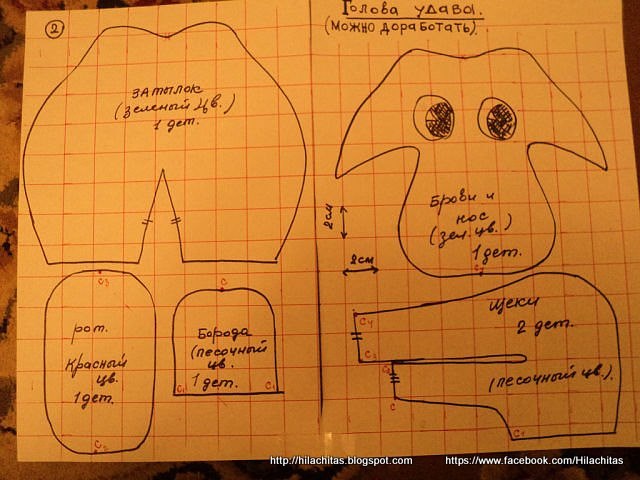 2
Голова удава.
(можно доработать).
затылок
(зеленый цв.)
1 дет.
Брови и
нос
(зел. цв.)
1 дет.
2см
2см
С3
рот.
Красный
цв.
1 дет.
С2
С
Борода
(песочный
цв.
1 дет.
С1
С1
С2
Щеки
2 дет.
(песочный цв.)
С4
С3
С
С1
http://hilachitas.blogspot.com
https://www.facebook.com/Hilachitas